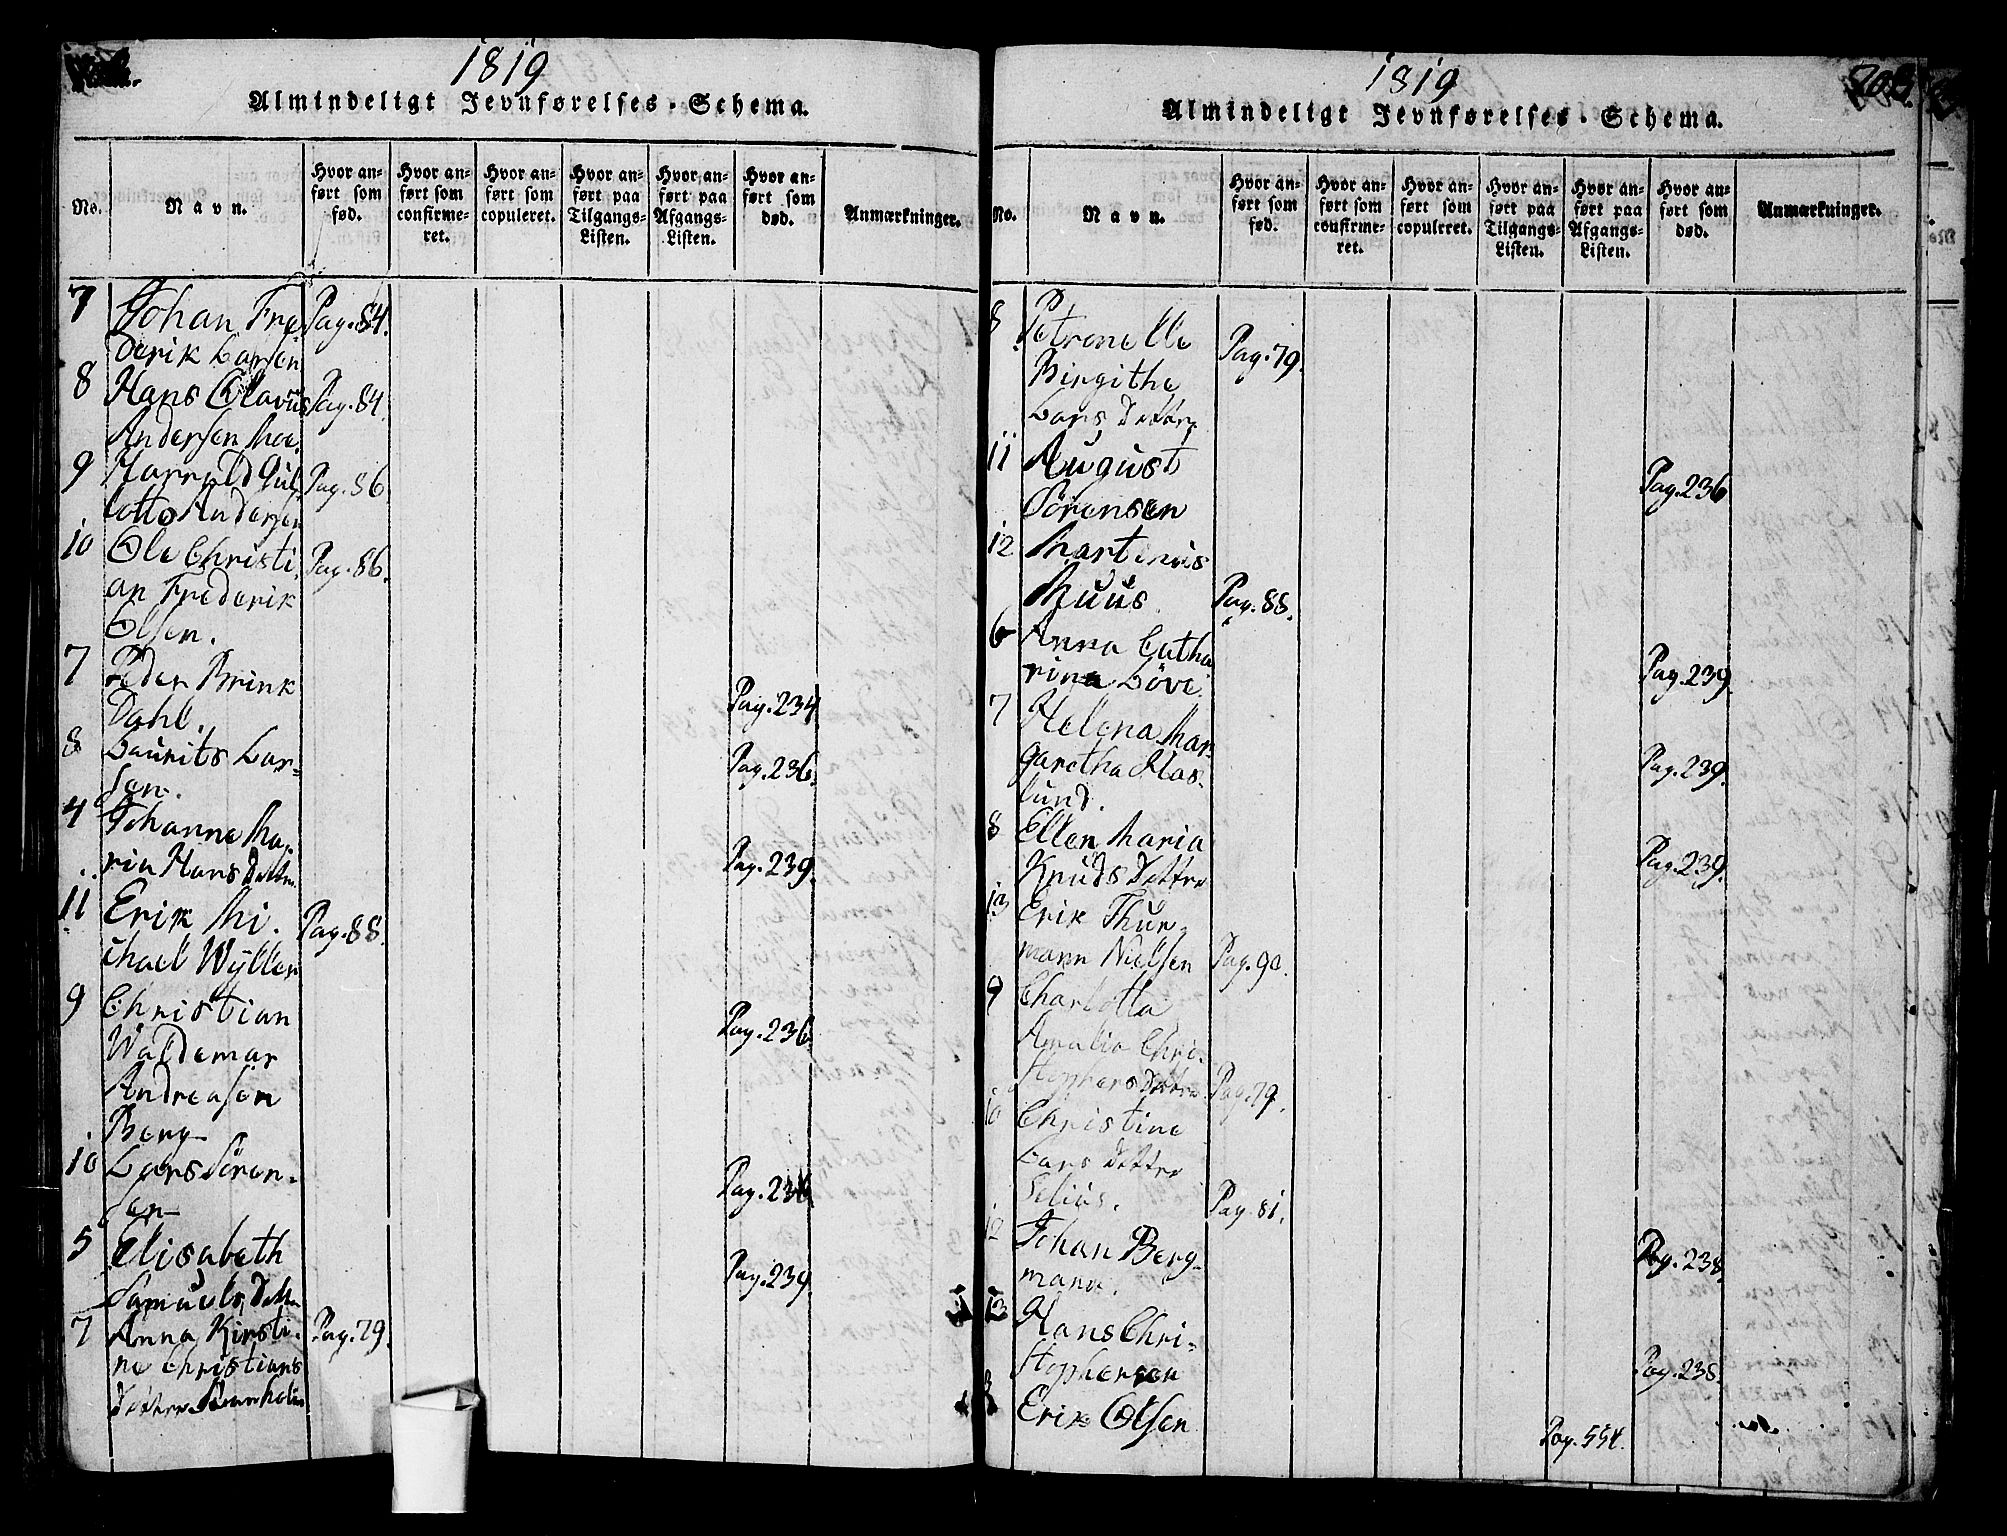 1819
Almindeligt Jevnførelses-Schema.
No.
Navn.
Hvor anført som fød.
Hvor anført som confirmeret.
Hvor anført som copuleret.
Hvor anført paa Tilgangs-Listen.
Hvor anført paa Afgangs-Listen.
Hvor anført som død.
Anmærkninger.
7 Johan Fre Pag. 84.
derik Larsen
8 Hans Olavus Pag. 84.
Andersen Moe
9 Harrald Gul Pag. 86
Andersen
10 Ole Christi Pag. 86.
an Frederik
Olsen.
7 Peder Brink
Dahl. Pag. 234
8 Laurits Lar=
sen. Pag. 236.
4 Johanne Ma-
ria Hans Dattr. Pag. 239.
11 Erik Mi- Pag. 88.
chael Wÿller
9 Christian
Waldemar Pag. 236.
Andreasen
Berg
10 Lars Sören-
sen Pag. 236
5 Elisabeth
Samuels Dattr Pag. 239.
7 Anna Kirsti- Pag. 79.
ne Christians
Datter
1819
Almindeligt Jevnførelses-Schema.
No.
Navn.
Hvor anført som fød.
Hvor anført som confirmeret.
Hvor anført som copuleret.
Hvor anført paa Tilgangs-Listen.
Hvor anført paa Afgangs-Listen.
Hvor anført som død.
Anmærkninger.
8 Petronelle
Birgithe Pag. 79.
Lars Dattr.
11 August
Sörensen Pag. 236
12 Martinus
Muus Pag. 88.
6 Anna Catha
rina Löve. Pag. 239.
7 Helena Mar-
garetha Has- Pag. 239.
lund.
8 Ellen Maria
Knuds Dattre Pag. 239.
13 Erik Thur-
mann Nielsen Pag. 90.
9 Charlotta
Amalia Chri-
stophers Dattre Pag. 79.
10 Christine
Lars Dattre
Selius. Pag. 81.
12 Johan Berg-
mann. Pag. 238.
13 Hans Chri-
stophersen Pag. 238.
3 Erik Olsen
Pag. 554.